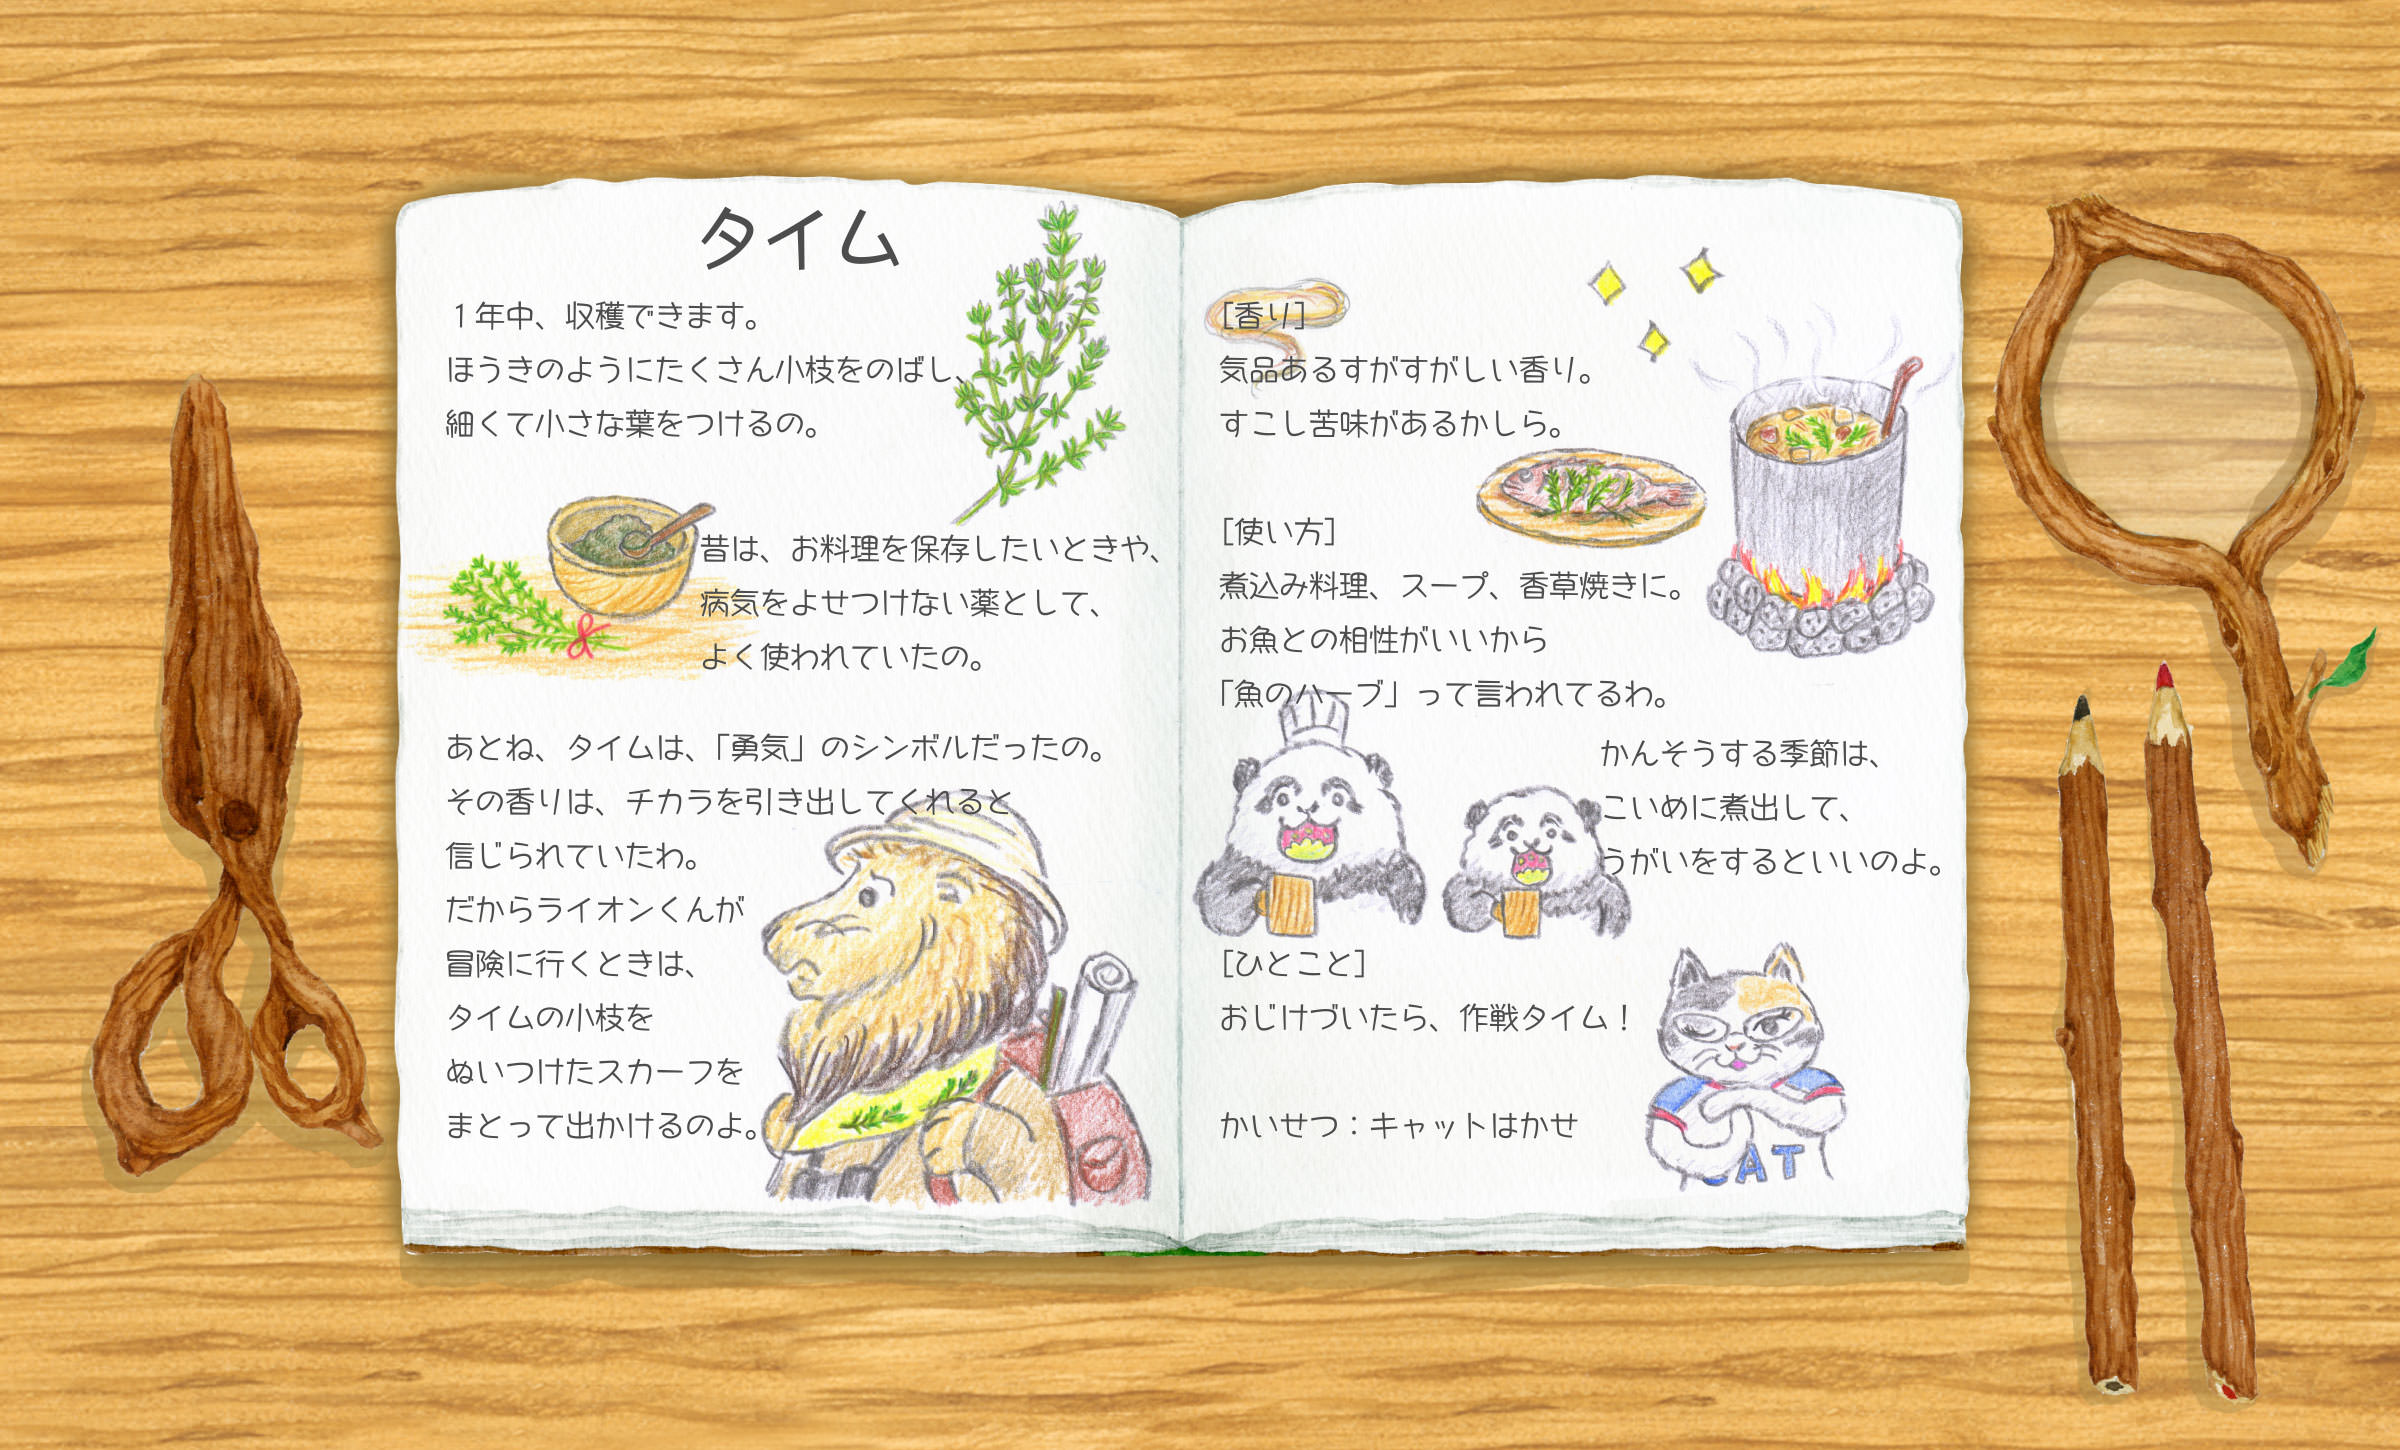 タイム
１年中、収穫できます。
ほうきのようにたくさん小枝をのばし、
細くて小さな葉をつけるの。
昔は、お料理を保存したいときや、
病気をよせつけない薬として、
よく使われていたの。
あとね、タイムは、「勇気」のシンボルだったの。
その香りは、チカラを引き出してくれると
信じられていたわ。
だからライオンくんが
冒険に行くときは、
タイムの小枝を
ぬいつけたスカーフを
まとって出かけるのよ。
[香り]
気品あるすがすがしい香り。
すこし苦味があるかしら。
[使い方]
煮込み料理、スープ、香草焼きに。
お魚との相性がいいから
「魚のハーブ」って言われてるわ。
かんそうする季節は、
こいめに煮出して、
うがいをするといいのよ。
[ひとこと]
おじけづいたら、作戦タイム！
かいせつ：キャットはかせ
CAT